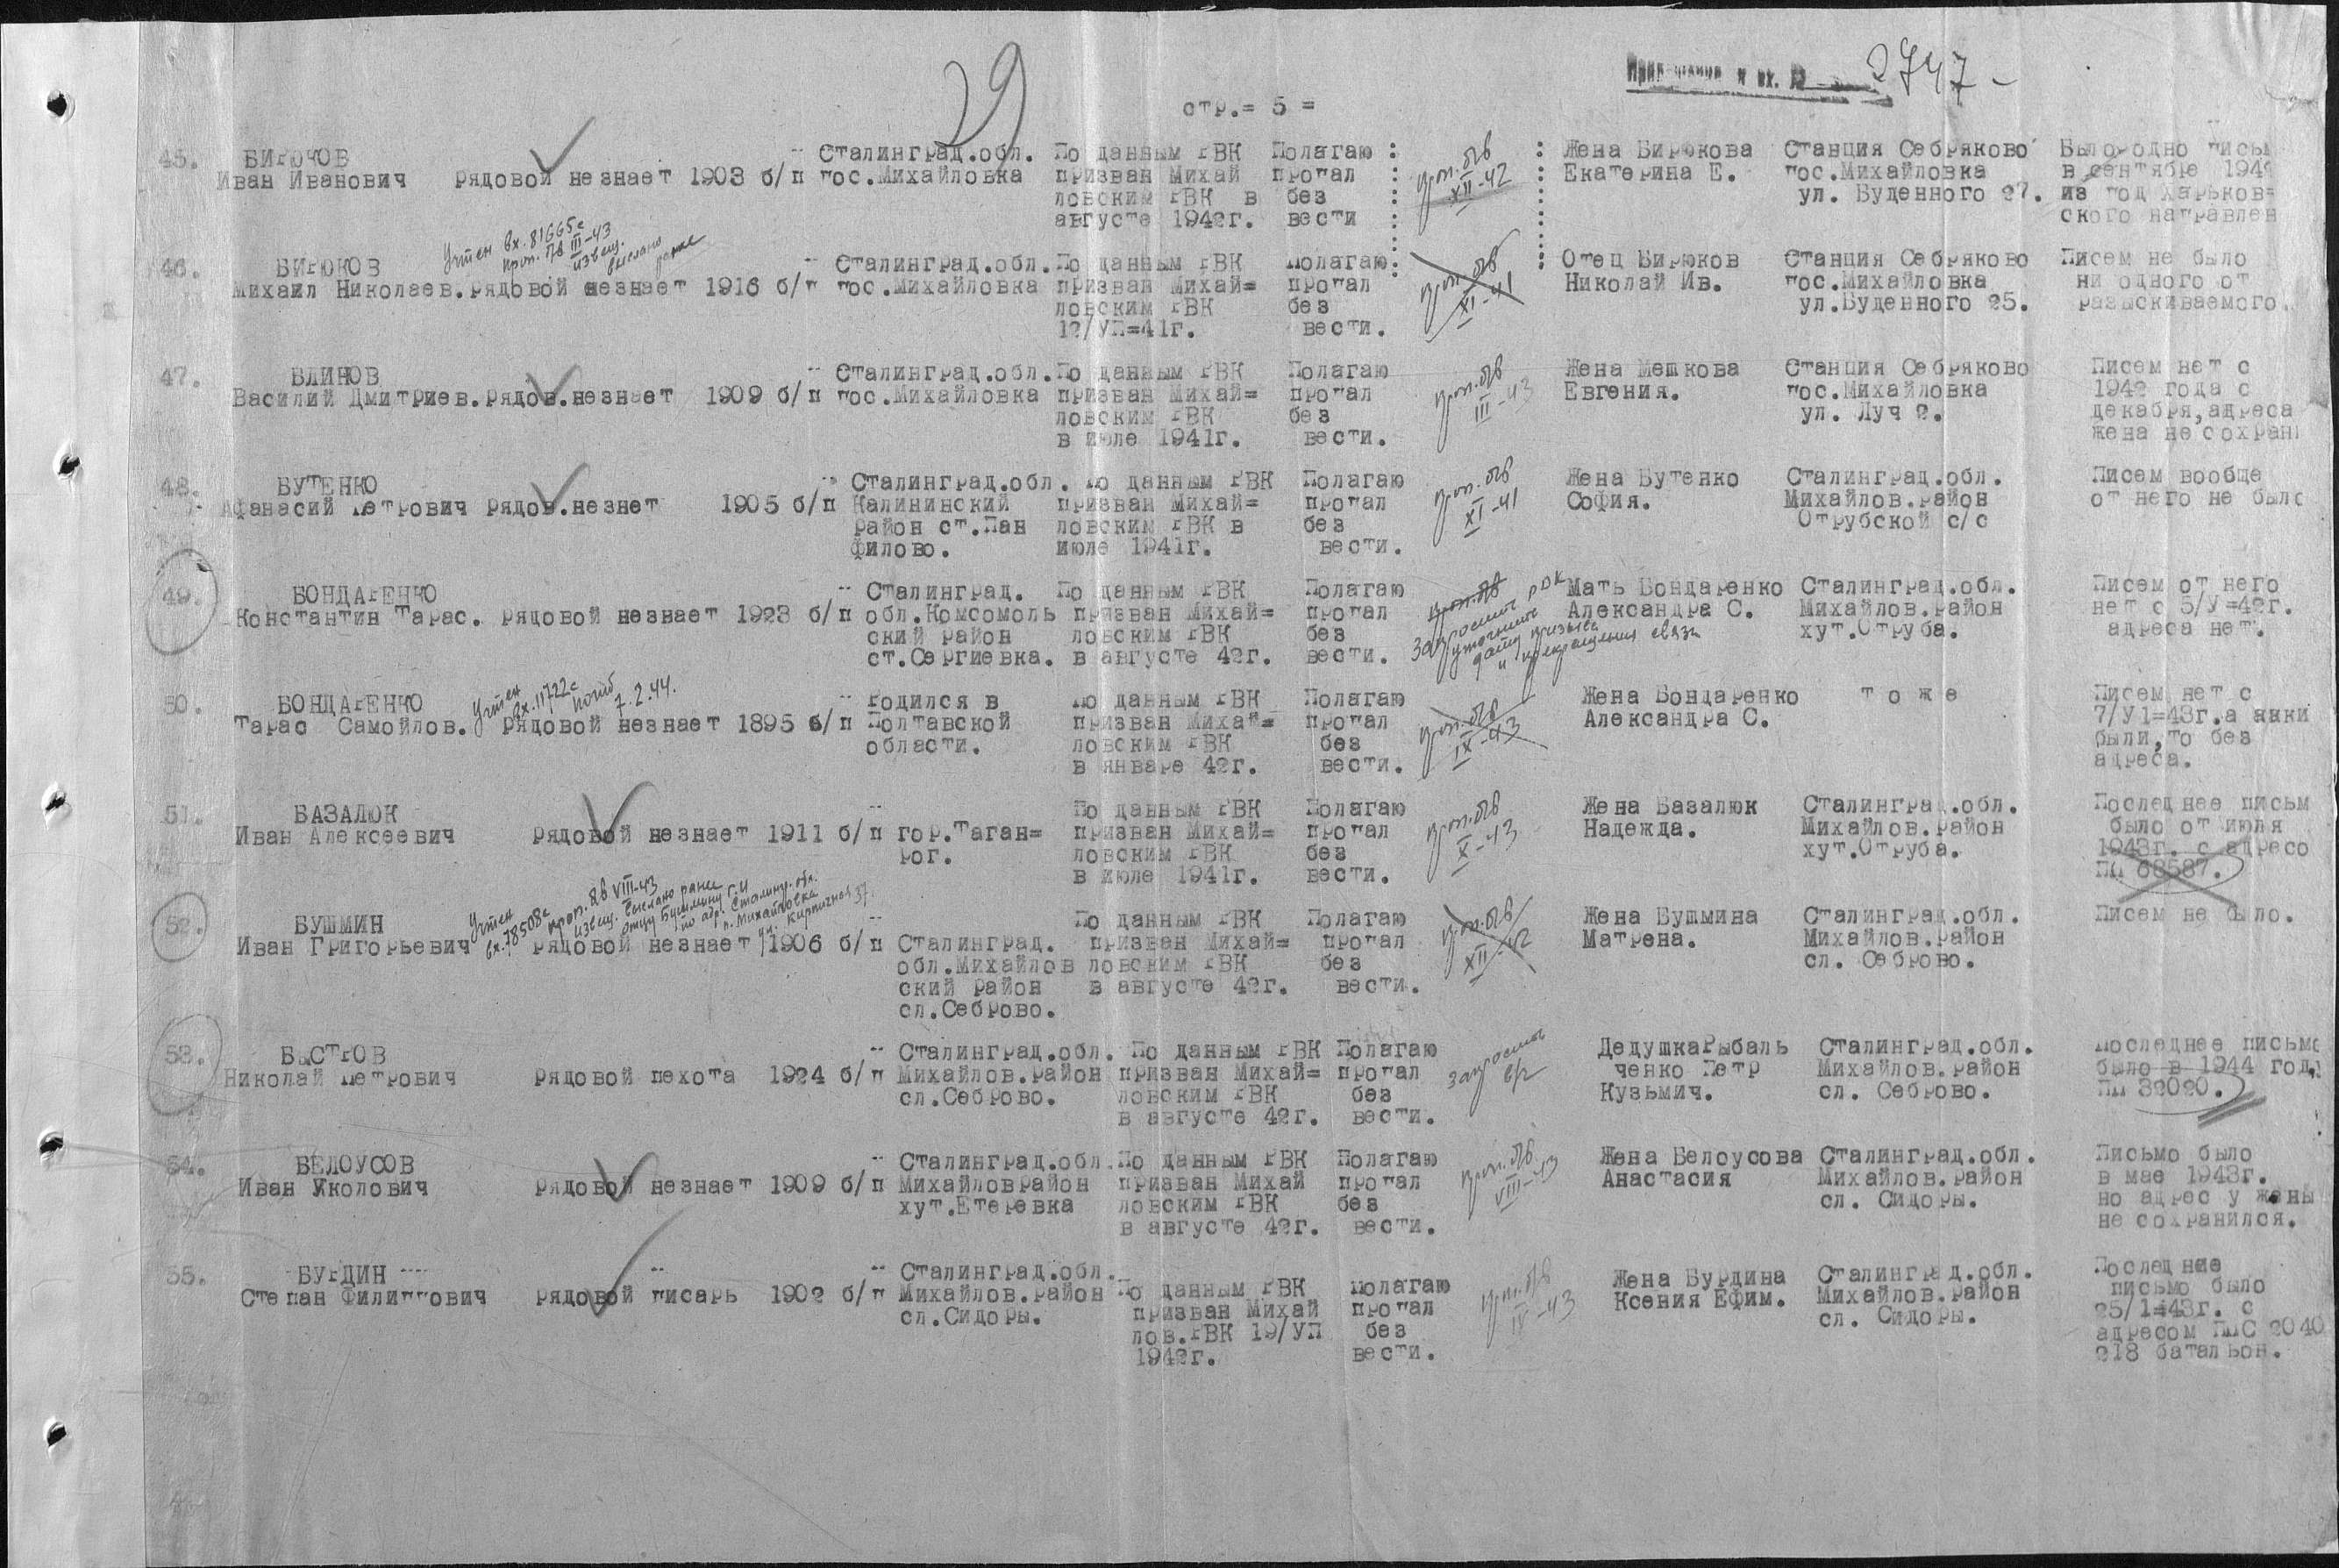 29
2747 -
стр.= 5 =
45. БИРЮКОВ Сталинград.обл. По данным РВК Полагаю Жена Бирюкова Станция Себряково Было одно письм
Иван Иванович рядовой незнает 1903 б/п пос.Михайловка призван Михай пропал проп. б/в XII-42 Екатерина Е. пос.Михайловка в сентябре 1942
ловским РВК в без ул. Буденного 27. из под Харьков=
августе 1942г. вести ского направлен
Учтен вх.81665с
проп. б/в III-43
извещ.
выслано
ранее
46. БИРЮКОВ Сталинград.обл. По данным РВК Полагаю Отец Бирюков Станция Себряково Писем не было
Михаил Николаев. рядовой незнает 1916 б/п пос.Михайловка призван Михай= пропал проп. б/в XI-41 Николай Ив. пос.Михайловка ни одного от
ловским РВК без ул.Буденного 25. разыскиваемого.
12/УП=41г. вести.
47. БЛИНОВ Сталинград.обл. По данным РВК Полагаю Жена Мешкова Станция Себряково Писем нет с
Василий Дмитриев. рядов. незнает 1909 б/п пос.Михайловка призван Михай= пропал проп. б/в III-43 Евгения. пос.Михайловка 1942 года с
ловским РВК без ул. Луч 2. декабря,адреса
в июле 1941г. вести. жена не сохрани
48. БУТЕНКО Сталинград.обл. По данным РВК Полагаю Жена Бутенко Сталинград.обл. Писем вообще
Афанасий Петрович рядов.незнет 1905 б/п Калининский призван Михай= пропал проп. б/в XI-41 София. Михайлов.район от него не было
район ст.Пан ловским РВК в без Отрубской с/с
филово. июле 1941г. вести.
49. БОНДАРЕНКО Сталинград. По данным РВК Полагаю Мать Бондаренко Сталинград.обл. Писем от него
Константин Тарас. рядовой незнает 1923 б/п обл.Комсомоль призван Михай= пропал Александра С. Михайлов.район нет с 5/У=42г.
ский район ловским РВК без хут.Отруба. адреса нет.
ст.Сергиевка. в августе 42г. вести.
проп. б/в
Запросить РВК
уточнить
дату призыва
и прекращения связи
Учтен
вх.11722с
погиб
7.2.44.
50. БОНДАРЕНКО Родился в По данным РВК Полагаю Жена Бондаренко т о ж е Писем нет с
Тарас Самойлов. рядовой незнает 1895 б/п Полтавской призван Михай= пропал проп. б/в IX-43 Александра С. 7/У1=43г.а яики
области. ловским РВК без были,то без
в январе 42г. вести. адреса.
51. БАЗАЛЮК По данным РВК Полагаю Жена Базалюк Сталинград.обл. Последнее письм
Иван Алексеевич рядовой незнает 1911 б/п гор.Таган= призван Михай= пропал проп. б/в X-43 Надежда. Михайлов.район было от июля
рог. ловским РВК без хут.Отруба. 1943г. с адресо
в июле 1941г. вести. ПП 68587.
Учтен
вх.78508с
проп. б/в VIII-43
извещ. выслано ранее
отцу Бушмину Г.И
по адр. Сталингр. обл.
п. Михайловка
ул. Кирпичная 37.
52. БУШМИН По данным РВК Полагаю Жена Бушмина Сталинград.обл. Писем не было.
Иван Григорьевич рядовой незнает 1906 б/п Сталинград. призван Михай= пропал проп. б/в XII-42 Матрена. Михайлов.район
обл.Михайлов ловским РВК без сл. Себрово.
ский район в августе 42г. вести.
сл.Себрово.
53. БЫСТРОВ Сталинград.обл. По данным РВК Полагаю ДедушкаРыбаль Сталинград.обл. Последнее письмо
Николай Петрович рядовой пехота 1924 б/п Михайлов.район призван Михай= пропал запросить в/ч ченко Петр Михайлов.район было в 1944 году
сл.Себрово. ловским РВК без Кузьмич. сл. Себрово. ПП 32020.
в августе 42г. вести.
54. БЕЛОУСОВ Сталинград.обл. По данным РВК Полагаю Жена Белоусова Сталинград.обл. Письмо было
Иван Яколович рядовой незнает 1909 б/п Михайловрайон призван Михай пропал проп. б/в VIII-43 Анастасия Михайлов.район в мае 1943г.
хут.Етеревка ловским РВК без сл. Сидоры. но адрес у жены
в августе 42г. вести. не сохранился.
55. БУРДИН Сталинград.обл. Жена Бурдина Сталинград.обл. Последние
Степан Филиппович рядовой писарь 1902 б/п Михайлов.район По данным РВК Полагаю проп. б/в IV-43 Ксения Ефим. Михайлов.район письмо было
сл.Сидоры. призван Михай пропал сл. Сидоры. 25/1=43г. с
лов.РВК 19/УП без адресом ППС 2040
1942г. вести. 218 батальон.